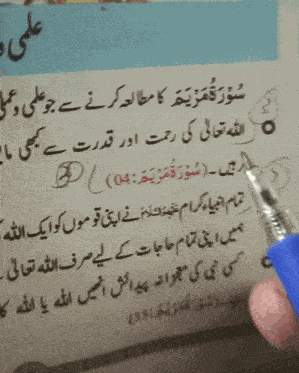 علمی و
سُوْرَةُ مَرْيَمَ کا مطالعہ کرنے سے جو علمی و عملی
اللہ تعالیٰ کی رحمت اور قدرت سے کبھی
رہیں۔ (سُوْرَةُ مَرْيَمَ: 04)
تمام انبیاء کرام نے اپنی قوموں کو ایک اللہ
ہمیں اپنی تمام حاجات کے لیے صرف اللہ تعالیٰ
کسی نبی کی معجزانہ پیدائش انھیں اللہ یا اللہ کا